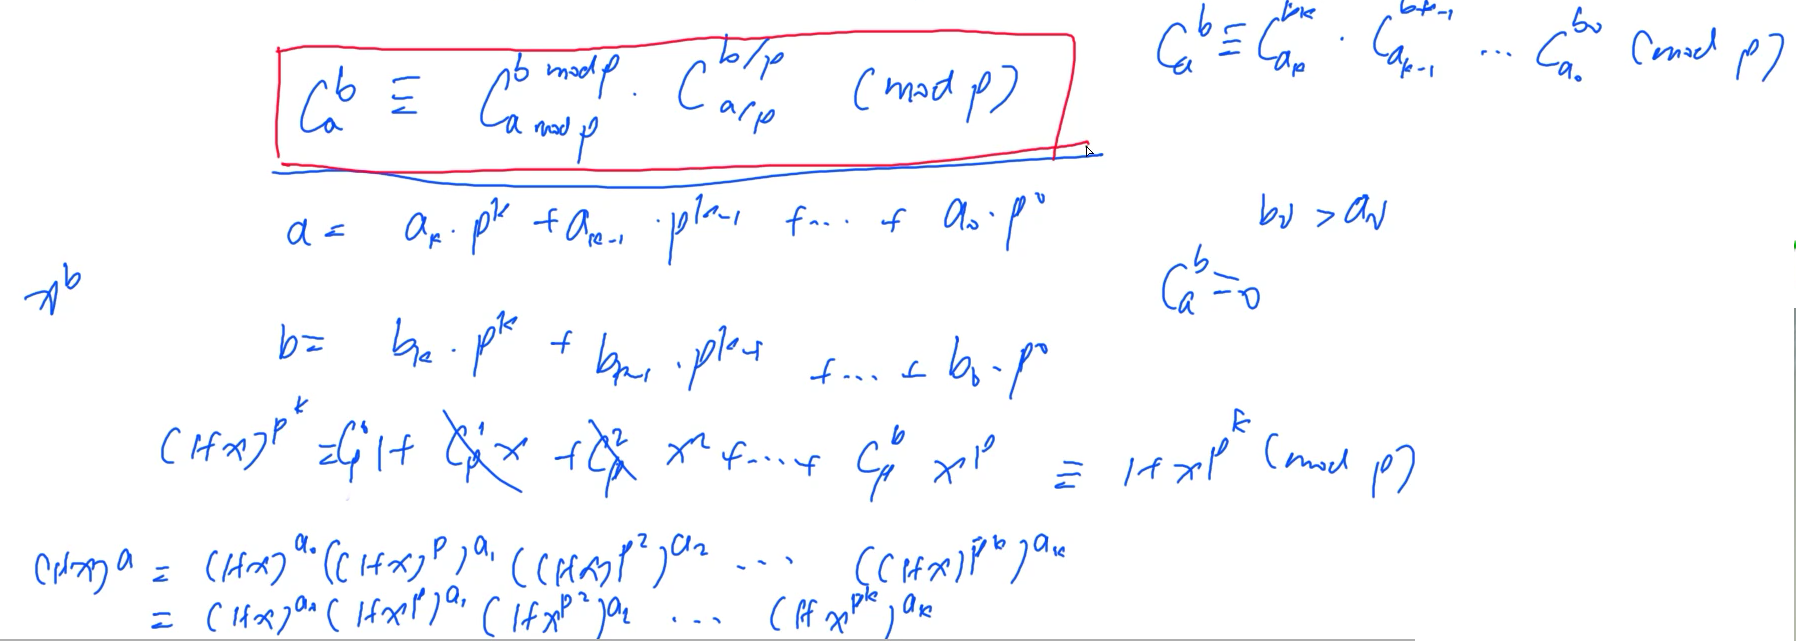 C_a^b ≡ C_{a mod p}^{b mod p} · C_{a/p}^{b/p} (mod p)
C_a^b ≡ C_{a_k}^{b_k} · C_{a_{k-1}}^{b_{k-1}} ... C_{a_0}^{b_0} (mod p)
a = a_k · p^k + a_{k-1} · p^{k-1} + ... + a_0 · p^0
b_0 > a_0
x^b
C_a^b = 0
b = b_k · p^k + b_{k-1} · p^{k-1} + ... + b_0 · p^0
(1+x)^{p^k} ≡ C_p^0 1 + C_p^1 x + C_p^2 x^2 + ... + C_p^p x^p ≡ 1 + x^{p^k} (mod p)
(1+x)^a = (1+x)^{a_0} ((1+x)^p)^{a_1} ((1+x)^{p^2})^{a_2} ... ((1+x)^{p^k})^{a_k}
= (1+x)^{a_0} (1+x^p)^{a_1} (1+x^{p^2})^{a_2} ... (1+x^{p^k})^{a_k}